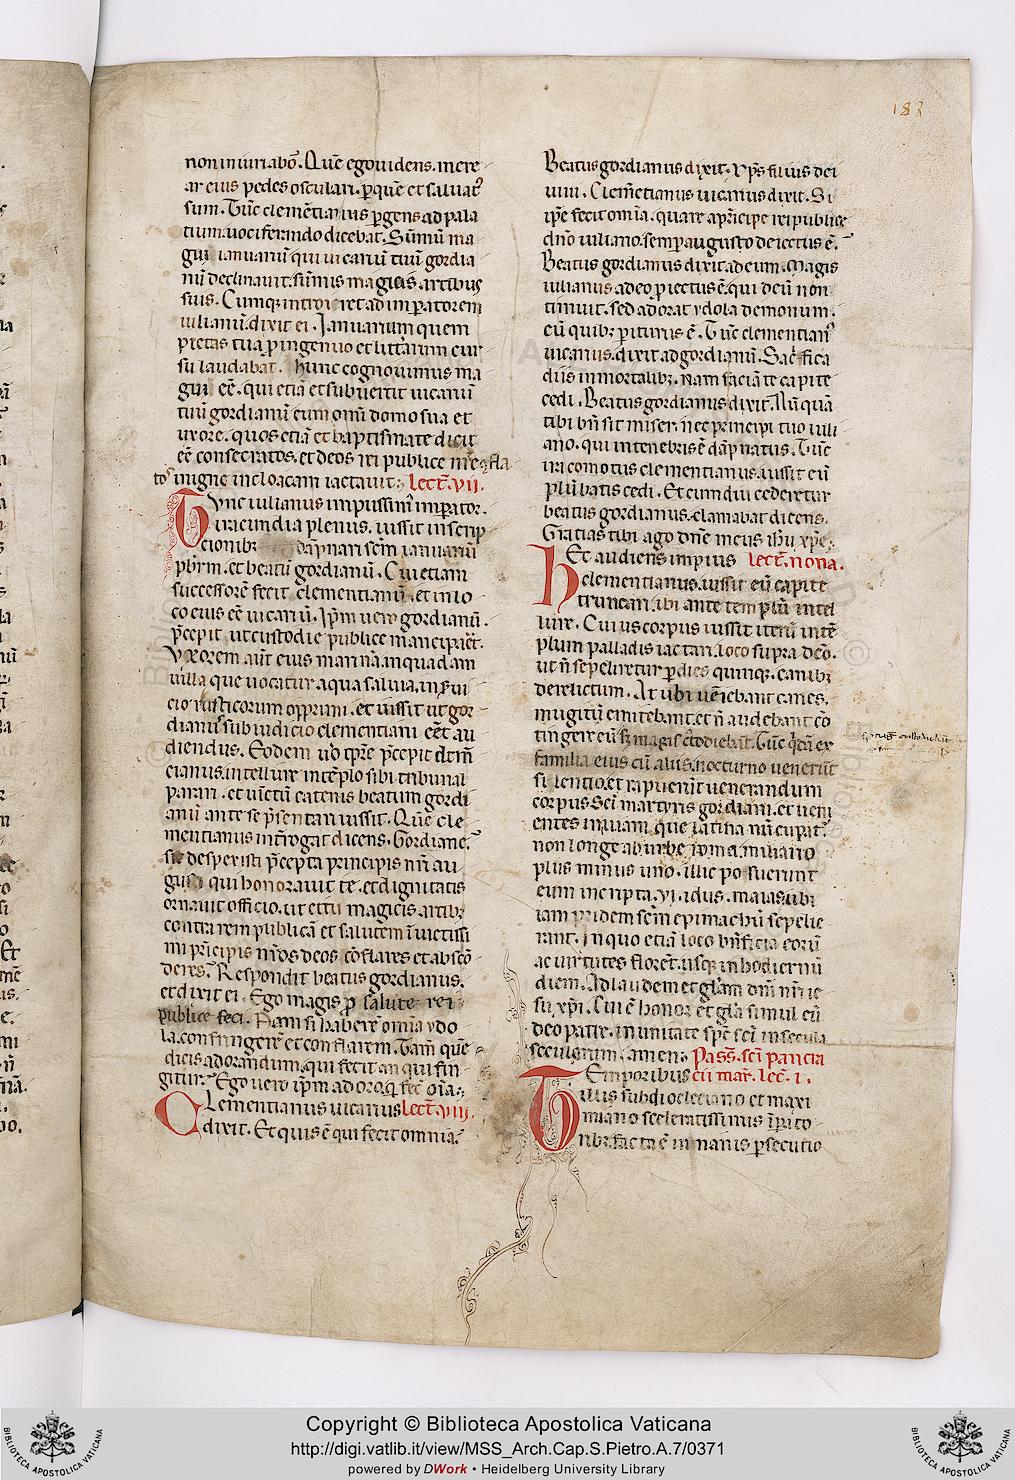 183
non iniuriabo. Quē ego uidens. mere
ar eius pedes osculari. p̱ quē et saluat᷒
sum. Tūc clemētianus p̱gens ad pala
tium. uociferando dicebat. Sūmū ma
gum ianuariū qui uicariū tuū gordia
nū declinauit. sūmis magicis artibus
suis. Cumq; introiret ad imperatorem
iulianū. dixit ei. Ianuarium quem
pietas tua p̱ ingenuo et litt̄arum cur
su laudabat. Hunc cognouimus ma
gum eē. qui etiā et subuertit uicariū
tuū gordianū cum omni domo sua et
uxore. quos etiā et baptismate dicit
eē consecratos. et deos rei publice nr̄e ꝯfla
tos igne in cloacam iactauit; lect̄. vii.
Tvnc iulianus impiissim᷒ imperator.
iracundia plenus. iussit inscrip
cionibꝫ dāpnari sc̄m ianuariū
pb̄rm. et beatū gordianū. Cui etiam
successorem fecit clementianū. et in lo
co eius eē uicariū. Ip̄m uero gordianū.
p̄cepit ut custodie publice manciparet.
Vxorem aūt eius marinā in quadam
uilla que uocatur aqua saluia. in serui
cio rusticorum opprimi. et iussit ut gor
dianus sub iudicio clementiani eēt au
diendus. Eodem uo tp̄re p̄cepit clem̄
cianus. in tellure in tēplo sibi tribunal
parari. et uīctū catenis beatum gordi
anū ante se p̄sentari iussit. Quē cle
mentianus int̄rogat dicens. Gordiane.
sic despexisti p̄cepta principis nr̄i au
gusti qui honorauit te. et dignitatis
ornauit officio. ut et tu magicis artibꝫ
contra rem publicā et salutem īuictissi
mi prīcipis nr̄os deos cōflares et abscō
deres. Respondit beatus gordianus.
et dixit ei. Ego magis pro salute rei
publice feci. Nam si haberē omnia ydo
la. confringere et conflarem. Tam̄ quē
dicis adorandum. qui fecit an qui fin
gitur. Ego uero ip̄m adoro. q̱ fec̄ oīa.
Clementianus uicarius lect̄. viii.
dixit. Et quis ē qui fecit omnia.
Beatus gordianus dixit. Xp̄s filius dei
uiui. Clem̄etianus uicarius dixit. Si
ip̄e fecit om̄ia. quare a prīcipe rei publice
dn̄o iuliano. semper augusto deiectus ē.
Beatus gordianus dixit ad eum. Magis
iulianus a deo p̱iectus ē. qui deū non
timuit. sed adorat ydola demonum.
cū quibꝫ periturus ē. Tūc clementian᷒
uicarius. dixit ad gordianū. Sac̄fica
diis inmortalibꝫ. Nam faciā te capite
cedi. Beatus gordianus dixit. Nūquā
tibi bn̄ sit miser. nec principi tuo iuli
ano. qui in tenebris ē dāpnatus. Tūc
ira comotus clementianus. iussit eū
plūbatis cedi. Et cum diu cederetur
beatus gordianus. clamabat dicens.
Gratias tibi ago dn̄e meus ih̄u xp̄e.
Hec audiens impius lect̄. nona.
clementianus. iussit eū capite
truncari. ibi ante templū intel
lure. Cuius corpus iussit iterū intē
plum palladis iactari. loco supra dc̄o.
ut n̄ sepeliretur per dies quinq;. canibꝫ
derelictum. At ubi uēiebant canes.
mugitū emitebant. et n̄ audebant cō
tingere eū sꝫ magis c̄todiebāt. Tūc q̄dā ex
familia eius cū aliis. nocturno uenerūt
silentio. et rapuerūt uenerandum
corpus sc̄i martyris gordiani. et ueni
entes in uiam que latina nūcupat᷒.
non longe ab urbe roma. miliario
plus minus uno. illic posuerunt
eum in cripta. vi. idus. maias. ubi
iam pridem sc̄m epimachū sepelie
rant. In quo etiā loco bn̄ficia eorū
ac uirtutes florēt. usq; in hodiernū
diem. Ad laudem et glāam dn̄i nr̄i ie
su xp̄i. Cui ē honor et glā simul cū
deo patre. in unitate sp̄c sc̄i in secula
seculorum. amen. Pass̄. sc̄i pancra
Temporibus cii mar̄. lec̄. i.
illis sub diocleciano et maxi
miano sceleratissimis īp̱ato
ribꝫ. facta ē in nanis p̱secutio
Copyright © Biblioteca Apostolica Vaticana
http://digi.vatlib.it/view/MSS_Arch.Cap.S.Pietro.A.7/0371
powered by DWork • Heidelberg University Library
BIBLIOTECA APOSTOLICA VATICANA
BIBLIOTECA APOSTOLICA VATICANA